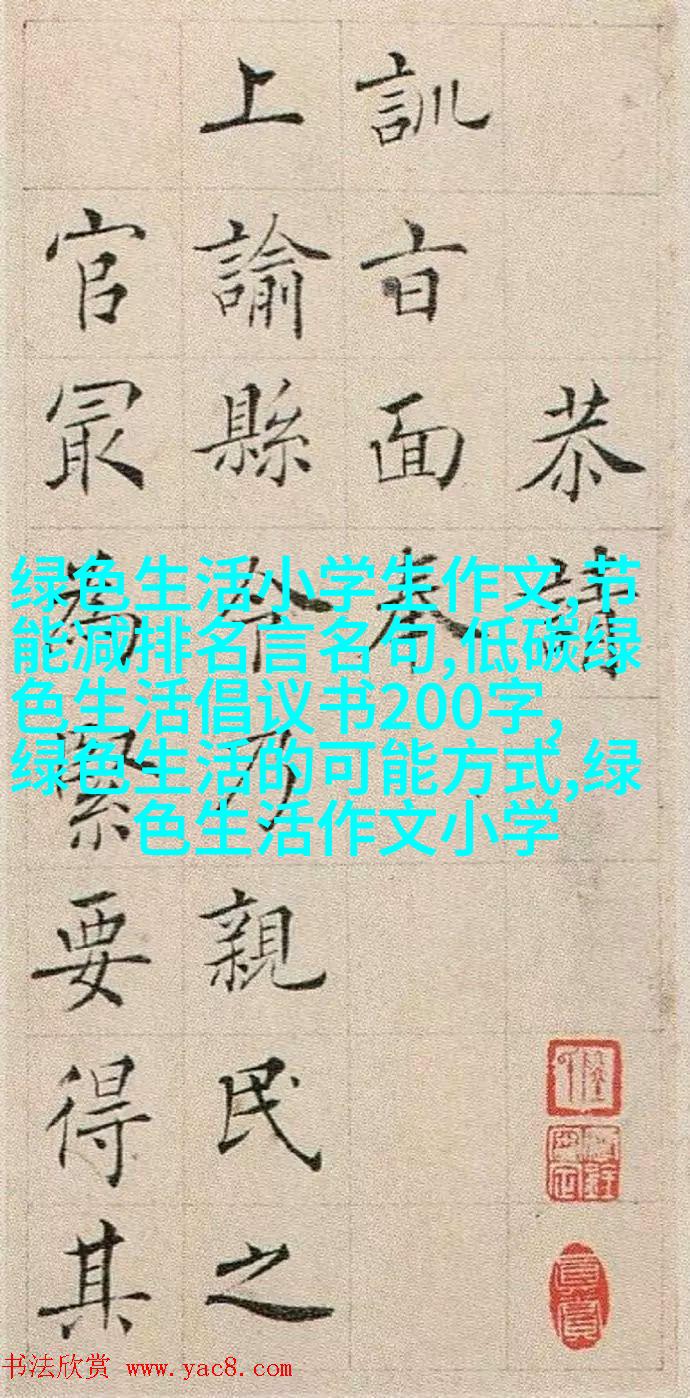 恭請
訓旨面奉
上諭縣令乃親民之
官冣為緊要得其
绿色生活小学生作文,节
能减排名言名句,低碳绿
色生活倡议书200字,
绿色生活的可能方式,绿
色生活作文小学
书法欣赏 www.yac8.com